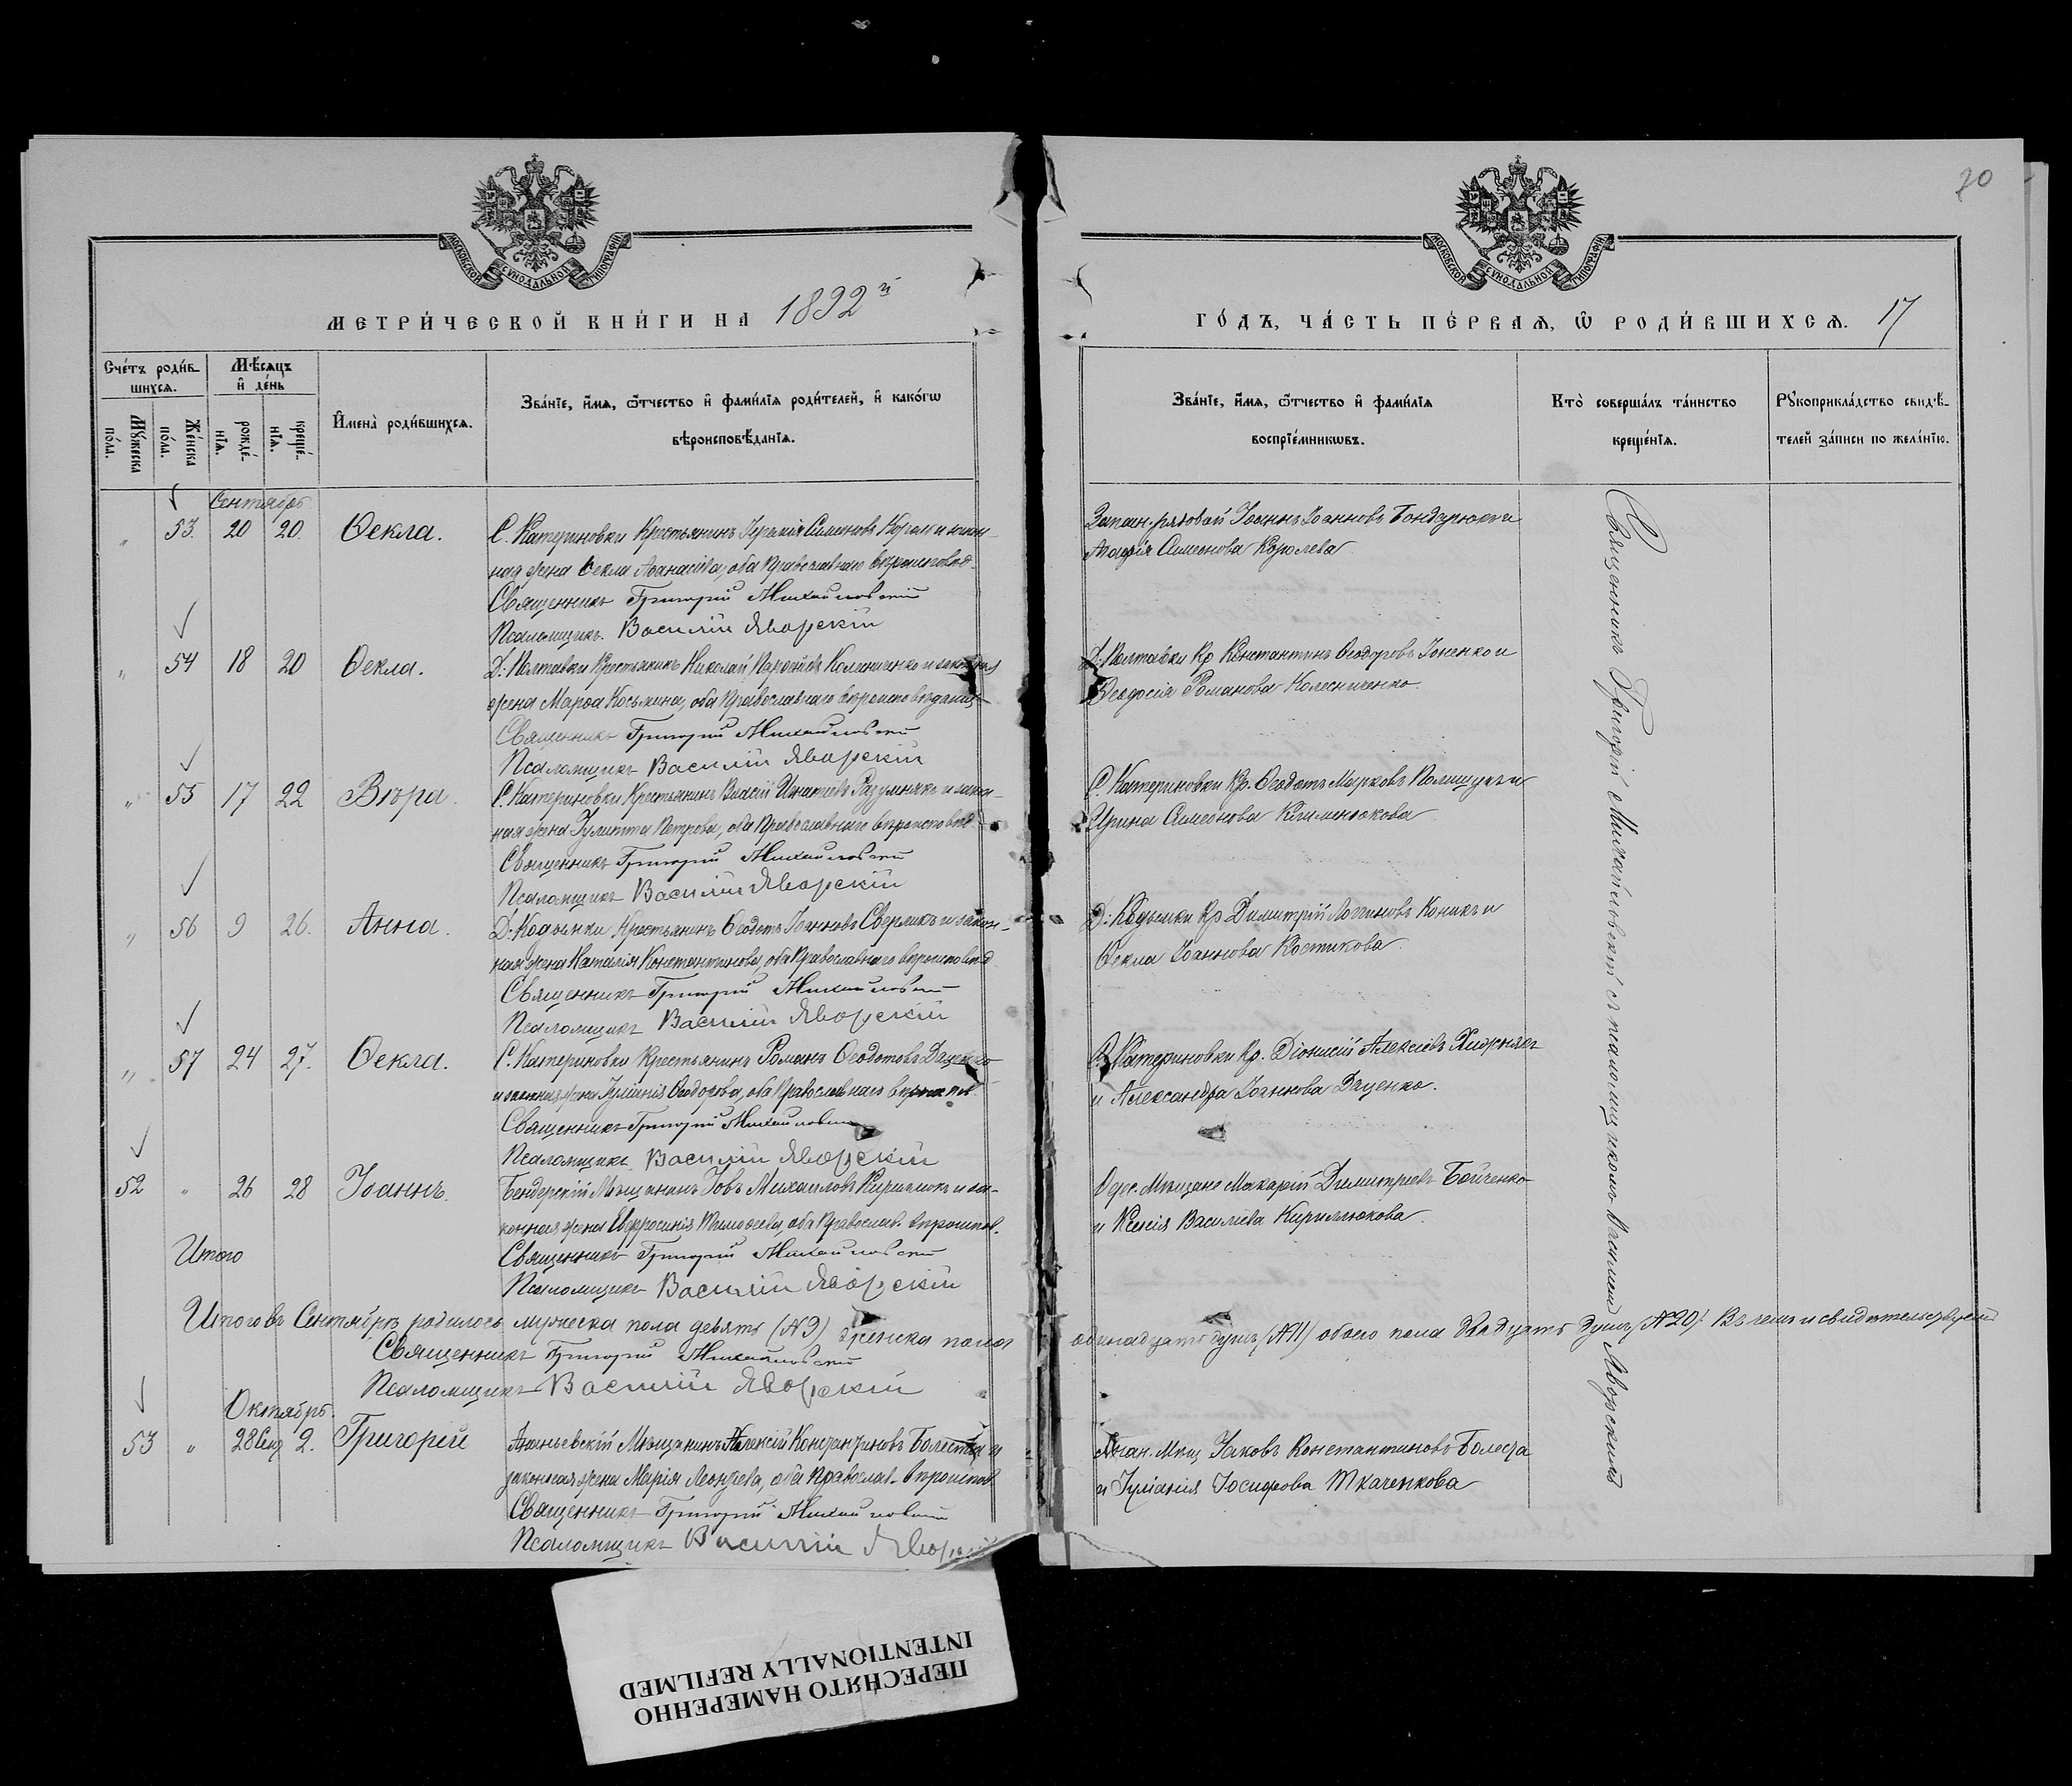 70
МОСКОВСКОЙ СѴНОДАЛЬНОЙ ТИПОГРАФІИ
МОСКОВСКОЙ СѴНОДАЛЬНОЙ ТИПОГРАФІИ
МЕТРИ́ЧЕСКОЙ КНИ́ГИ НА 1892й
ГО́ДЪ, ЧА́СТЬ ПЕ́РВАЯ, Ѡ РОДИ́ВШИХСЯ. 17
Сче́тъ роди́вшихся.
Мѣ́сяцъ и де́нь
Мꙋ́жеска по́ла.
Же́нска по́ла.
рожде́нїя.
креще́нїя.
И҆мена̀ роди́вшихся.
Зва́нїе, и҆́мя, ѻ҆́тчество и҆ фами́лїя роди́телей, и҆ како́гѡ вѣроисповѣ́данїя.
Зва́нїе, и҆́мя, ѻ҆́тчество и҆ фами́лїя воспрїе́мникѡвъ.
Кто̀ соверша́лъ та́инство креще́нїя.
Рꙋкоприкла́дство свидѣ́телей за́писи по жела́нїю.
Сентябрь
„ 53. 20 20. Ѳекла.
С. Катериновки Крестьянинъ Симеоновъ Король и закон-
ная жена Ѳекла Аѳанасіева, оба Православнаго вѣроисповѣд.
Священникъ Григорій Михайловскій
Псаломщикъ Василій Яворскій
Запасн. рядовой Іоаннъ Іоанновъ Бондарюкъ и
Агафія Симеонова Королева
„ 54 18 20 Ѳекла.
Д. Полтавки Крестьянинъ Николай и законная
жена Марѳа Косьмина, оба Православнаго вѣроисповѣданія
Священникъ Григорій Михайловскій
Псаломщикъ Василій Яворскій
Д. Полтавки Кр. Константинъ Ѳеодоровъ Іоненко и
Ѳеодосія Романова Колесниченко
„ 55 17 22 Вѣра.
С. Катериновки Крестьянинъ Власій Игнатіевъ Разумнякъ и закон-
ная жена Іулитта Петрова, оба Православнаго вѣроисповѣд.
Священникъ Григорій Михайловскій
Псаломщикъ Василій Яворскій
С. Катериновки Кр. Ѳеодотъ Марковъ Полищукъ и
Ирина Симеонова Клименюкова
„ 56 9 26. Анна.
Д. Кодымки Крестьянинъ Ѳеодотъ Іоанновъ и закон-
ная жена Наталія Константинова, оба Православнаго вѣроисповѣд.
Священникъ Григорій Михайловскій
Псаломщикъ Василій Яворскій
Д. Кодымки Кр. Димитрій Логгиновъ Коникъ и
Ѳекла Іоаннова Костикова
„ 57 24 27. Ѳекла.
С. Катериновки Крестьянинъ Романъ Ѳеодотовъ Даценко
и законная жена Іуліанія Ѳеодорова, оба Православнаго вѣроиспов.
Священникъ Григорій Михайловскій
Псаломщикъ Василій Яворскій
С. Катериновки Кр. Діонисій Алексіевъ
и Александра Іоаннова Даценко.
52 „ 26 28 Іоаннъ.
Бендерскій Мѣщанинъ Іовъ Михаиловъ Кирилюкъ и за-
конная жена Евфросинія Тимоѳеева, оба Православ. вѣроиспов.
Священникъ Григорій Михайловскій
Псаломщикъ Василій Яворскій
Одес. Мѣщане Макарій Димитріевъ Бойченко
и Ксенія Василіева Кириллюкова
Итого
Итого въ Сентябрѣ родилось мужеска пола девять (№9) женска пола одинадцать душъ (№11) обоего пола двадцать душъ (№20). Въ чемъ и свидѣтельствуемъ
Священникъ Григорій Михайловскій
Псаломщикъ Василій Яворскій
Октябрь.
53 „ 28 Сен. 2. Григорій
Ананьевскій Мѣщанинъ Алексій Константиновъ и
законная жена Марія Леонтіева, оба Православ. вѣроиспов.
Священникъ Григорій Михайловскій
Псаломщикъ Василій Яворскій
Анан. Мѣщ. Іаковъ Константиновъ
и Іуліанія Іосифова Ткаченкова
Священникъ Григорій Михайловскій съ псаломщикомъ Василіемъ Яворскимъ
ПЕРЕСНЯТО НАМЕРЕННО
INTENTIONALLY REFILMED